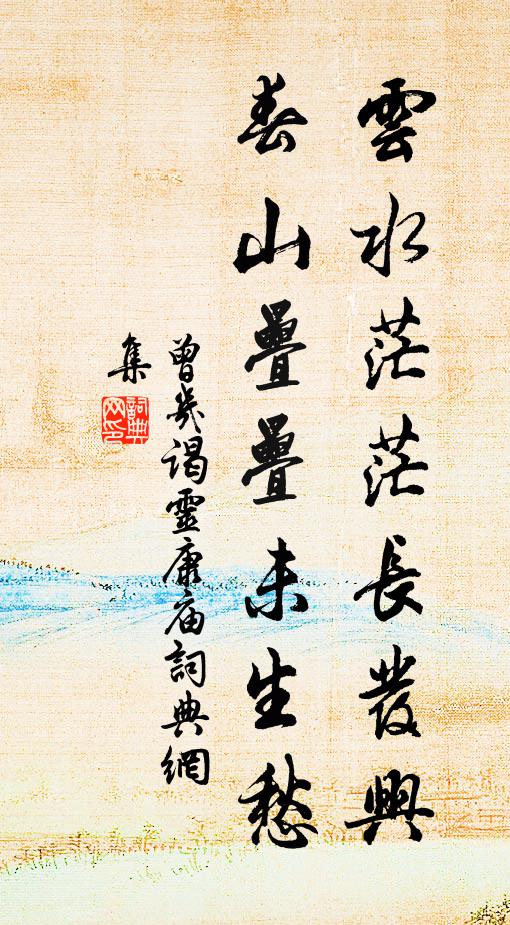 雲水茫茫長發興
春山疊疊未生愁
曾幾謁靈康庙詞典網
集
詞典
网印